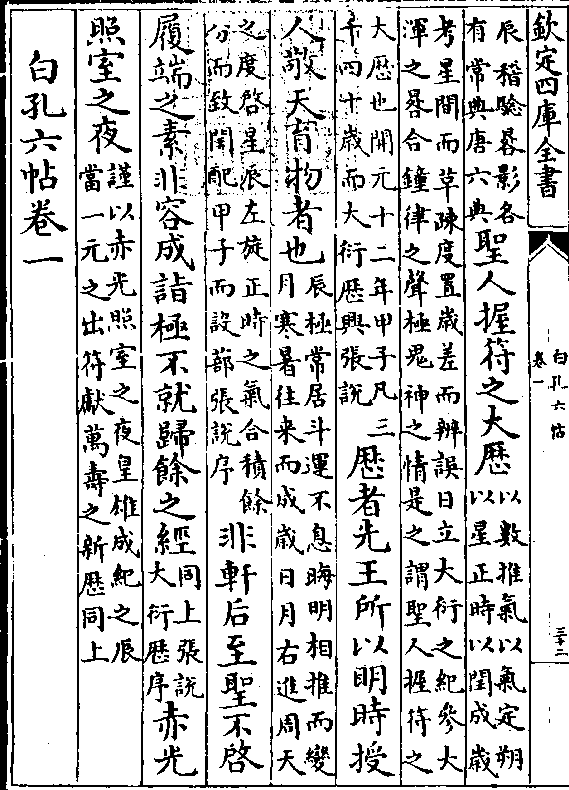 欽定四庫全書
白孔六帖
卷一
三十二
辰稽驗晷影各
有常典唐六典
聖人握符之大歷
以數推氣以氣定朔
以星正時以閏成歲
考星間而草疎度置歲差而辨誤日立大衍之紀參大
渾之晷合鐘律之聲極鬼神之情是之謂聖人握符之
大歷也開元十二年甲子凡三
千四十歲而大衍歷興張說
歷者先王所以明時授
人敬天育物者也
辰極常居斗運不息晦明相推而變
月寒暑往來而成歲日月右進周天
之度啓星辰左旋正時之氣合積餘
分而致閏配甲子而設蔀張說序
非軒后至聖不啓
履端之素非容成詣極不就歸餘之經
同上張說
大衍歷序
赤光
照室之夜
謹以赤光照室之夜皇雄成紀之辰
當一元之出符獻萬壽之新歷同上
白孔六帖卷一